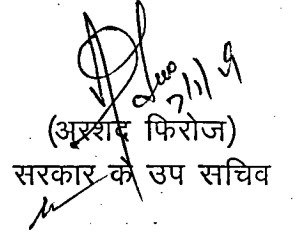 7/1/19
(अरशद फिरोज)
सरकार के उप सचिव